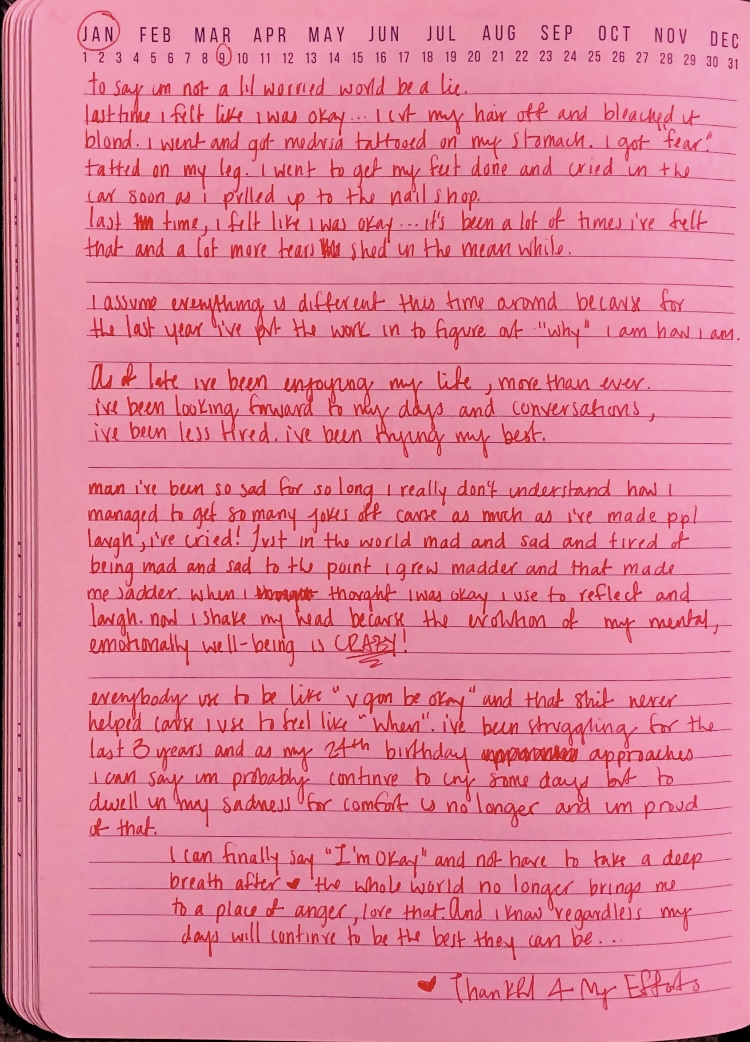 JAN FEB MAR APR MAY JUN JUL AUG SEP OCT NOV DEC
1 2 3 4 5 6 7 8 9 10 11 12 13 14 15 16 17 18 19 20 21 22 23 24 25 26 27 28 29 30 31
to say im not a lil worried would be a lie.
last time i felt like i was okay... i cut my hair off and bleached it
blond. i went and got medusa tattooed on my stomach. i got "fear"
tatted on my leg. i went to get my feet done and cried in the
car soon as i pulled up to the nail shop.
last time, i felt like i was okay... it's been a lot of times i've felt
that and a lot more tears shed in the mean while.
i assume everything is different this time around because for
the last year i've put the work in to figure out "why" i am how i am.
As of late ive been enjoying my life, more than ever.
ive been looking forward to my days and conversations,
ive been less tired. ive been trying my best.
man i've been so sad for so long i really don't understand how i
managed to get so many jokes off cause as much as i've made ppl
laugh, i've cried! Just in the world mad and sad and tired of
being mad and sad to the point i grew madder and that made
me sadder. when i thought i was okay i use to reflect and
laugh. now i shake my head because the evolution of my mental,
emotionally well-being is CRAZY!
everybody use to be like "u gon be okay" and that shit never
helped cause i use to feel like "when". ive been struggling for the
last 3 years and as my 24th birthday approaches
i can say im probably continue to cry some days but to
dwell in my sadness for comfort is no longer and im proud
of that.
I can finally say "I'm okay" and not have to take a deep
breath after ♥ the whole world no longer brings me
to a place of anger, love that. And i know regardless my
days will continue to be the best they can be...
♥ Thankful 4 My Efforts